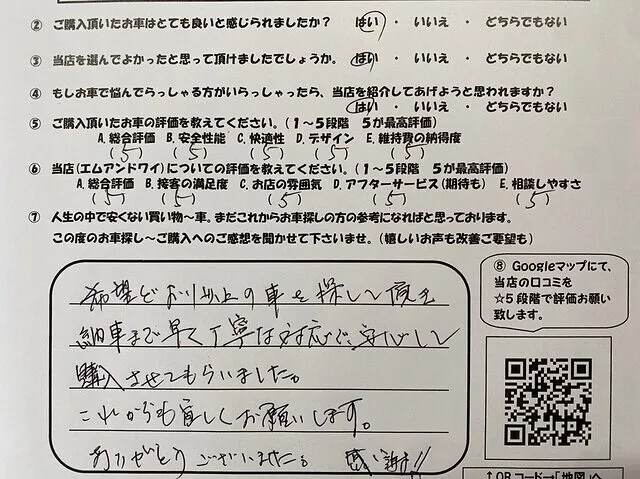 ② ご購入頂いたお車はとても良いと感じられましたか？ はい ・ いいえ ・ どちらでもない
③ 当店を選んでよかったと思って頂けましたでしょうか。 はい ・ いいえ ・ どちらでもない
④ もしお車で悩んでらっしゃる方がいらっしゃったら、当店を紹介してあげようと思われますか？
はい ・ いいえ ・ どちらでもない
⑤ ご購入頂いたお車の評価を教えてください。（１～５段階 ５が最高評価）
A. 総合評価 B. 安全性能 C. 快適性 D. デザイン E. 維持費の納得度
(5) (5) (5) (5) (5)
⑥ 当店（エムアンドワイ）についての評価を教えてください。（１～５段階 ５が最高評価）
A. 総合評価 B. 接客の満足度 C. お店の雰囲気 D. アフターサービス（期待も） E. 相談しやすさ
(5) (5) (5) (5) (5)
⑦ 人生の中で安くない買い物～車。まだこれからお車探しの方の参考になればと思っております。
この度のお車探し～ご購入へのご感想を聞かせて下さいませ。（嬉しいお声も改善ご要望も）
希望どおり以上の車を探して頂き
納車まで早く丁寧な対応で、安心して
購入させてもらいました。
これからも宜しくお願いします。
ありがとうございました。 感謝!!
⑧ Googleマップにて、
当店の口コミを
☆５段階で評価お願い
致します。
↑QRコード→「地図」へ